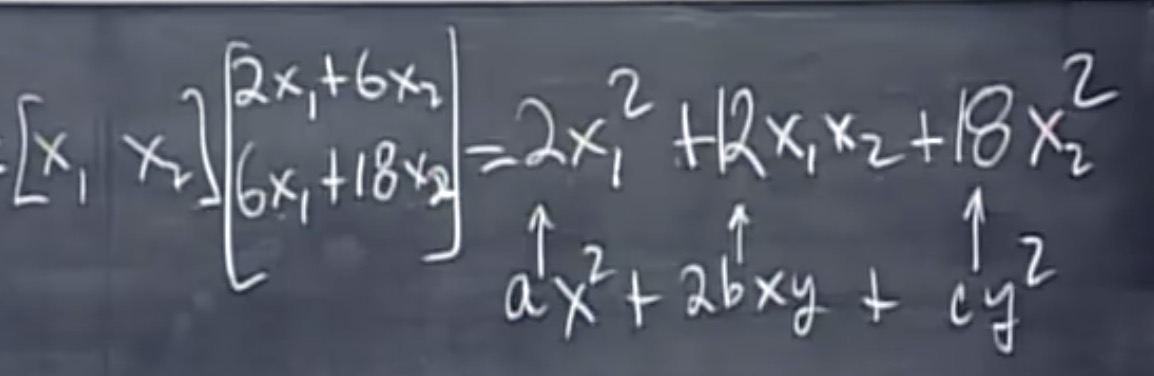 = [x₁ x₂] [2x₁+6x₂
6x₁+18x₂] = 2x₁² + 12x₁x₂ + 18x₂²
↑ ↑ ↑
ax² + 2bxy + cy²